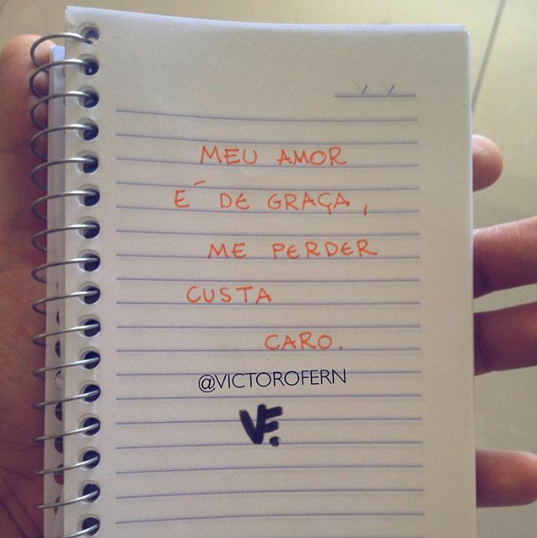 MEU AMOR
É DE GRAÇA,
ME PERDER
CUSTA
CARO.
@VICTOROFERN
VF.